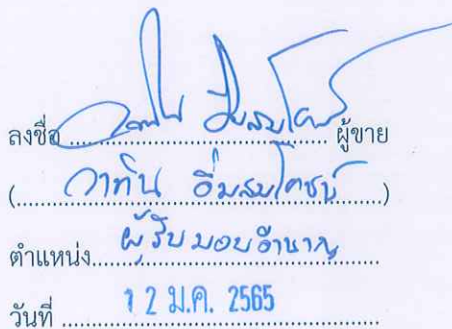 ลงชื่อ ........................ ผู้ขาย
(วาทิน อิ่มสมโภชน์)
ตำแหน่ง ผู้รับมอบอำนาจ
วันที่ 12 ม.ค. 2565